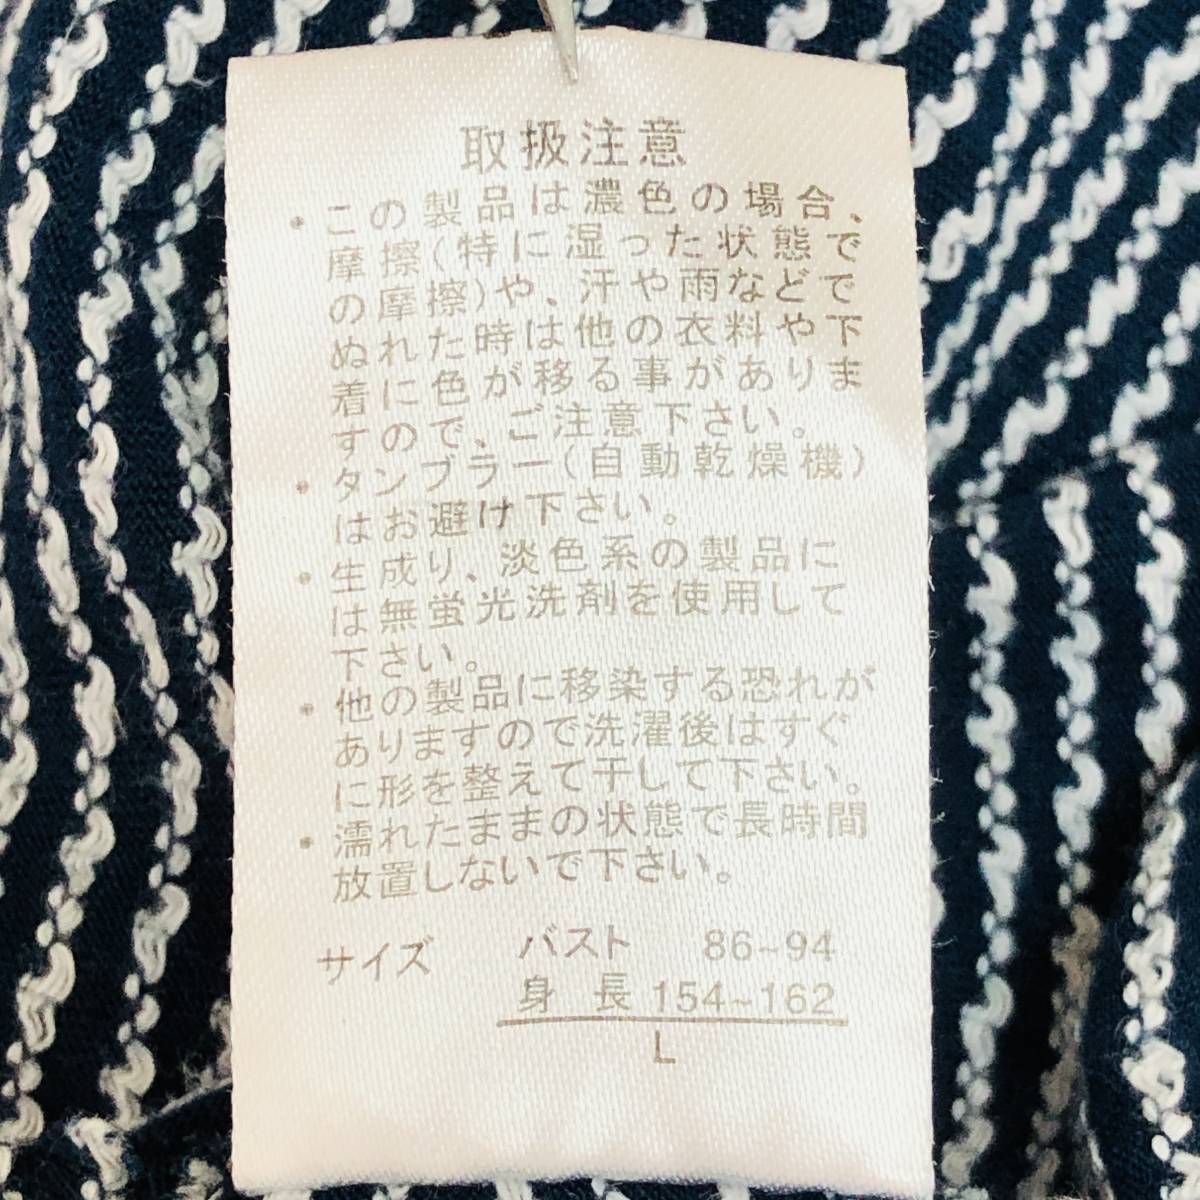 取扱注意
・この製品は濃色の場合、
摩擦(特に湿った状態で
の摩擦)や、汗や雨などで
ぬれた時は他の衣料や下
着に色が移る事がありま
すので、ご注意下さい。
・タンブラー(自動乾燥機)
はお避け下さい。
・生成り、淡色系の製品に
は無蛍光洗剤を使用して
下さい。
・他の製品に移染する恐れが
ありますので洗濯後はすぐ
に形を整えて干して下さい。
・濡れたままの状態で長時間
放置しないで下さい。
サイズ バスト 86~94
身長 154~162
L